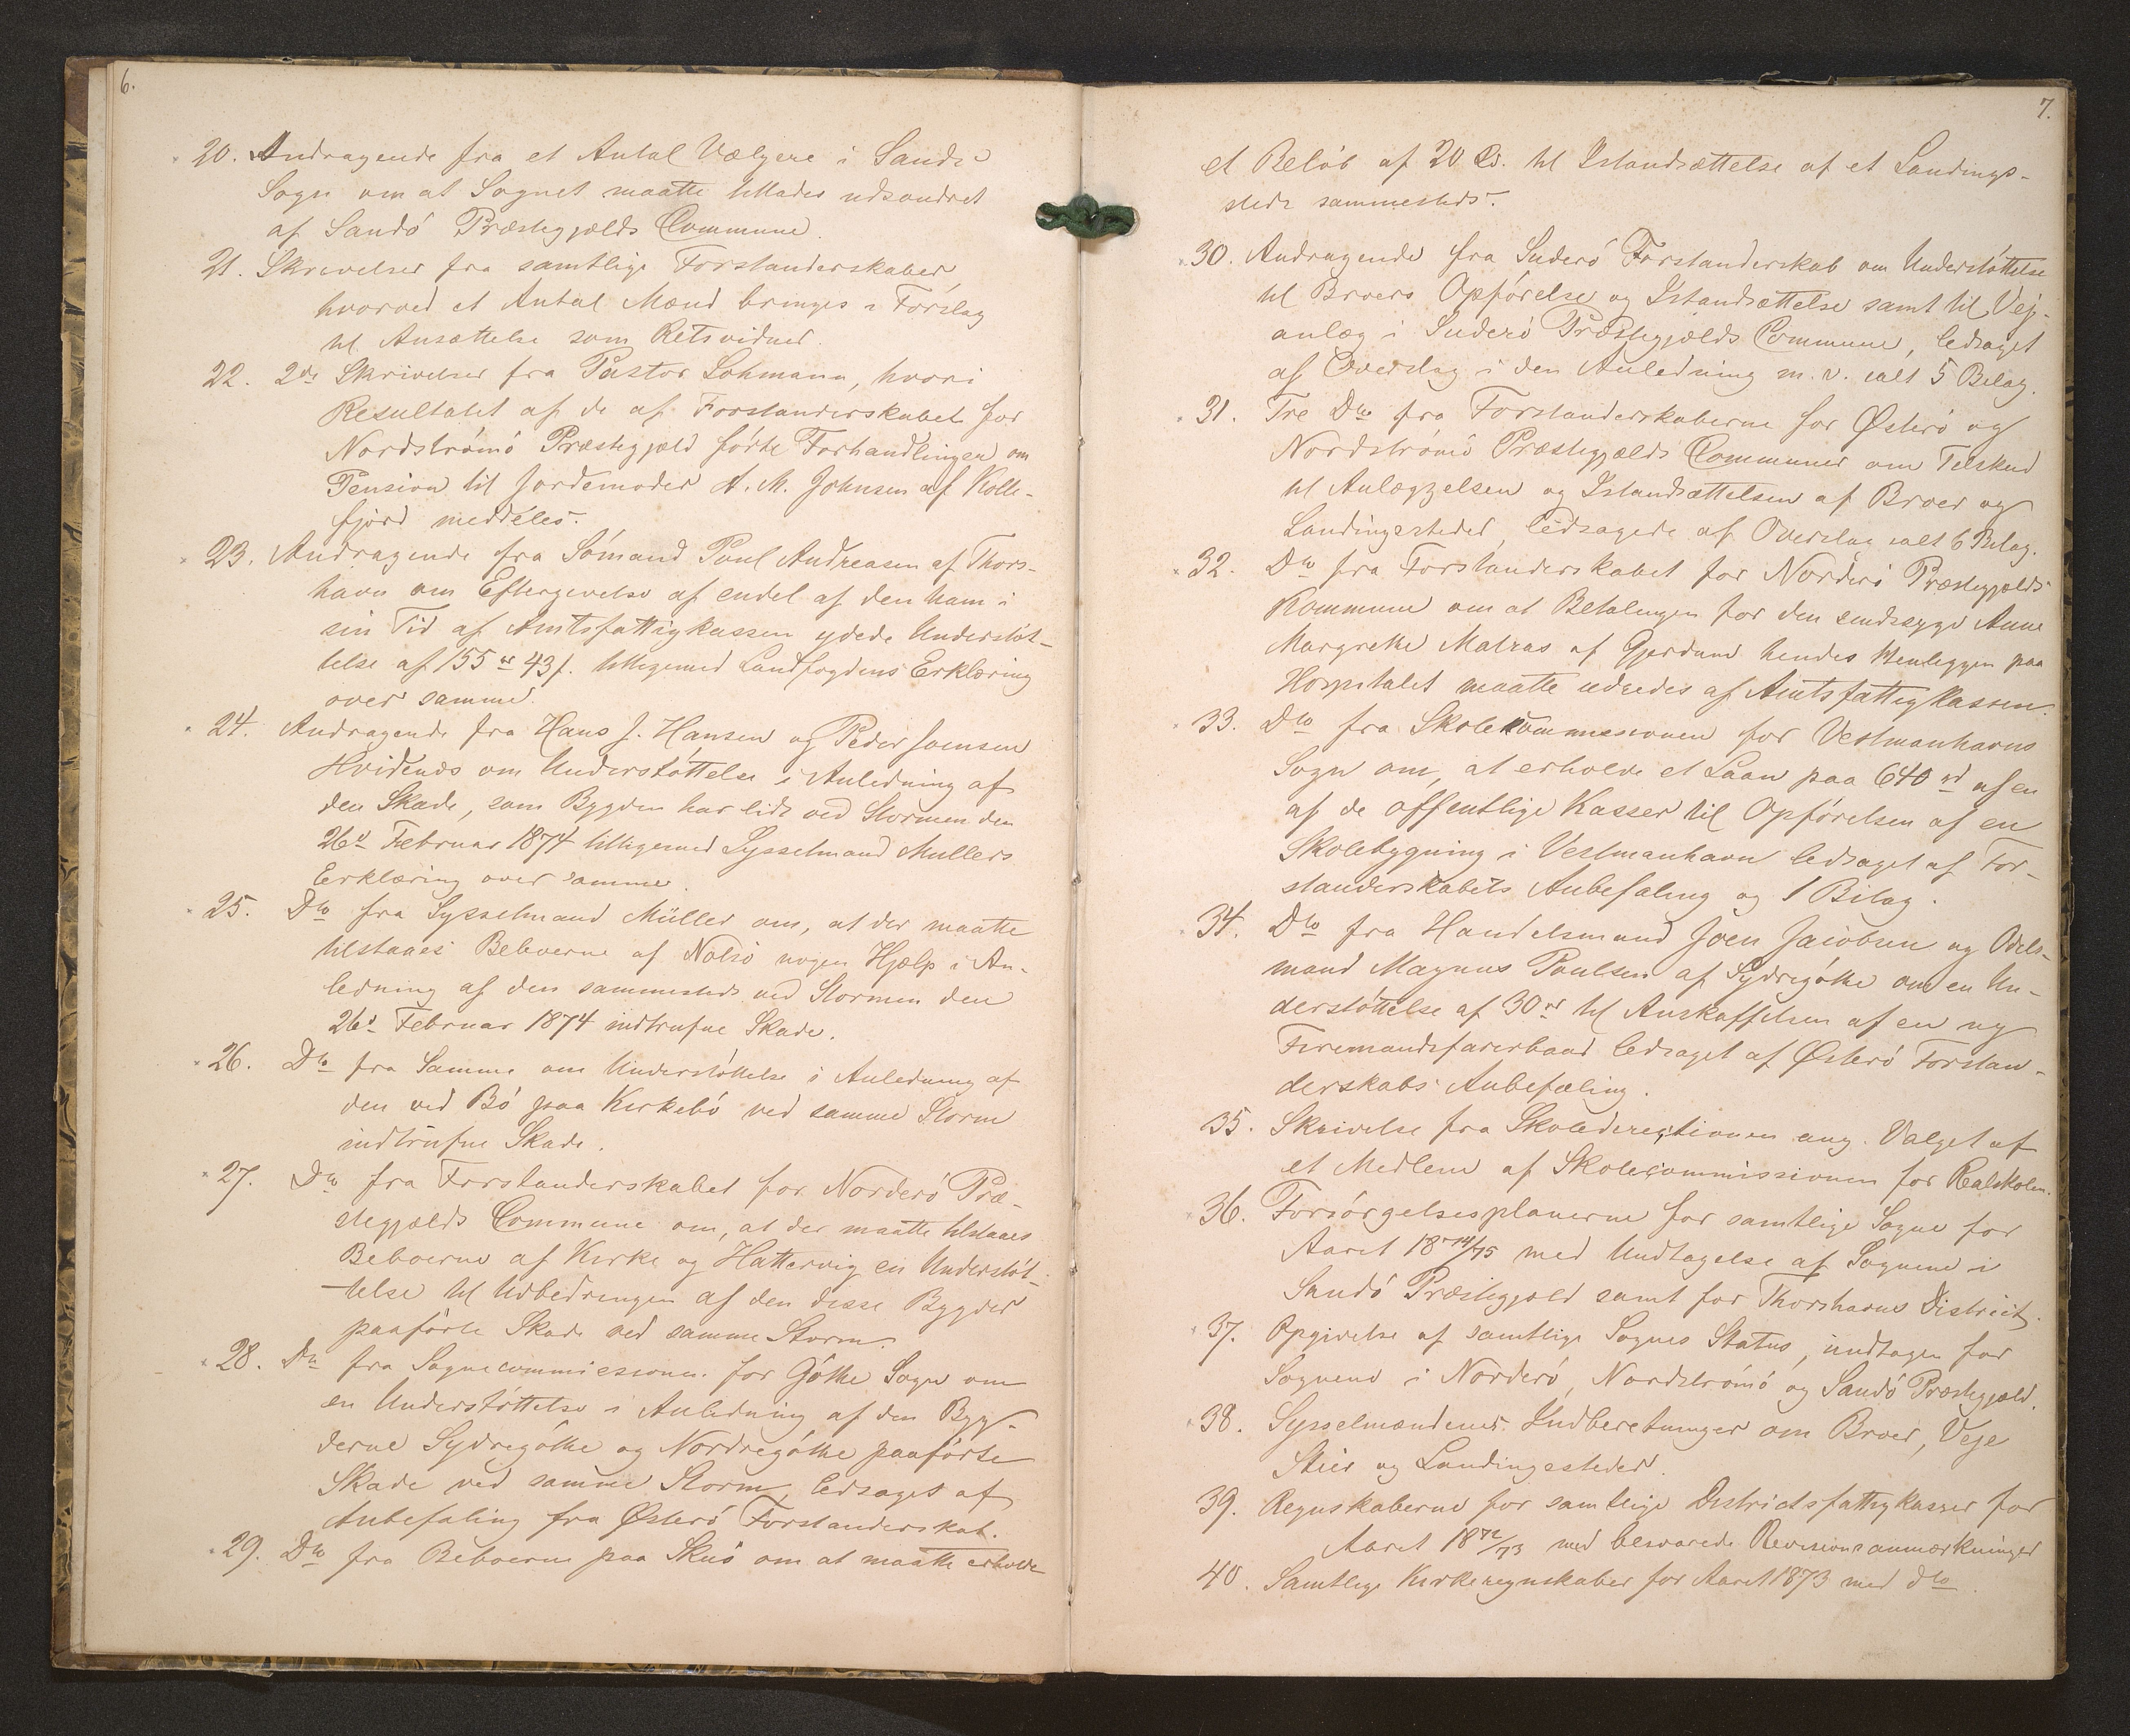 6.
20. Andragende fra et Antal Vælgere i Sands
Sogn om at Sognet maatte tillades udsondret
af Sandö Præstegjælds Commune.
21. Skrivelser fra samtlige Forstanderskaber,
hvorved et Antal Mænd bringes i Forslag
til Ansættelse som Retsvidner.
22. 2de Skrivelser fra Pastor Lohmann, hvori
Resultatet af de af Forstanderskabet for
Nordströmö Præstegjæld förte Forhandlinger om
Pension til Jordemoder A. M. Johnsen af Kolle-
fjord meddeles.
23. Andragende fra Sömand Poul Andreasen af Thors-
havn om Eftergivelse af endel af den ham i
sin Tid af Amtsfattigkassen ydede Understöt-
telse af 155 rd 43 f. tilligemed Landfogdens Erklæring
over samme.
24. Andragende fra Hans J. Hansen og Peder Joensen
Hvidenæs om Understöttelse i Anledning af
den Skade, som Bygden har lidt ved Stormen den
26d Februar 1874 tilligemed Sysselmand Mullers
Erklæring over samme.
25. Dto fra Sysselmand Müller om, at der maatte
tilstaaes Beboerne af Nolsö nogen Hjælp i An-
ledning af den sammesteds ved Stormen den
26d Februar 1874 indtrufne Skade.
26. Dto fra Samme om Understöttelse i Anledning af
den ved Bö paa Kirkebö ved samme Storm
indtrufne Skade.
27. Dto fra Forstanderskabet for Norderö Præ-
stegjælds Commune om, at der maatte tilstaaes
Beboerne af Kirke og Hattervig en Understöt-
telse til Udbedringen af den disse Bygder
paaförte Skade ved samme Storm.
28. Dto fra Sognecommissionen for Göthe Sogn om
en Understöttelse i Anledning af den Byg-
derne Sydregöthe og Nordregöthe paaförte
Skade ved samme Storm, ledsaget af
Anbefaling fra Østerö Forstanderskab.
29. Dto fra Beboerne paa Skuö om at maatte erholde
7.
et Belöb af 20 Rd. til Istandsættelse af et Landings-
sted sammesteds.
30. Andragende fra Suderö Forstanderskab om Understöttelse
til Broers Opförelse og Istandsættelse samt til Vej-
anlæg i Suderö Præstegjælds Commune, ledsaget
af Overslag i den Anledning m. v. ialt 5 Bilag.
31. Tre Dto fra Forstanderskaberne for Østerö og
Nordströmö Præstegjælds Communer om Tilskud
til Anlæggelsen og Istandsættelsen af Broer og
Landingssteder, ledsagede af Overslag ialt 6 Bilag.
32. Dto fra Forstanderskabet for Norderö Præstegjælds
Kommune om at Betalingen for den sindssyge Anne
Margrethe Matras af Gjerdum hendes Henliggen paa
Hospitalet maatte udredes af Amtsfattigkassen.
33. Dto fra Skolekommissionen for Vestmanhavns
Sogn om, at erholde et Laan paa 640 rd af en
af de offentlige Kasser til Opförelsen af en
Skolebygning i Vestmanhavn ledsaget af For-
standerskabets Anbefaling og 1 Bilag.
34. Dto fra Handelsmand Joen Jacobsen og Odels-
mand Magnus Poulsen af Sydregöthe om en Un-
derstöttelse af 30 rd til Anskaffelsen af en ny
Firemandsfarerbaad ledsaget af Østerö Forstan-
derskabs Anbefaling.
35. Skrivelse fra Skoledirectionen ang. Valget af
et Medlem af Skolecommissionen for Realskolen.
36. Forsörgelsesplanerne for samtlige Sogne for
Aaret 1874/75 med Undtagelse af Sognene i
Sandö Præstegjæld samt for Thorshavns District.
37. Opgivelse af samtlige Sognes Status, undtagen for
Sognene i Norderö, Nordströmö og Sandö Præstegjæld.
38. Sysselmændenes Indberetninger om Broer, Veje
Stier og Landingssteder.
39. Regnskaberne for samtlige Districtsfattigkasser for
Aaret 1872/73 med besvarede Revisionsanmærkninger
40. Samtlige Kirkeregnskaber for Aaret 1873 med dto